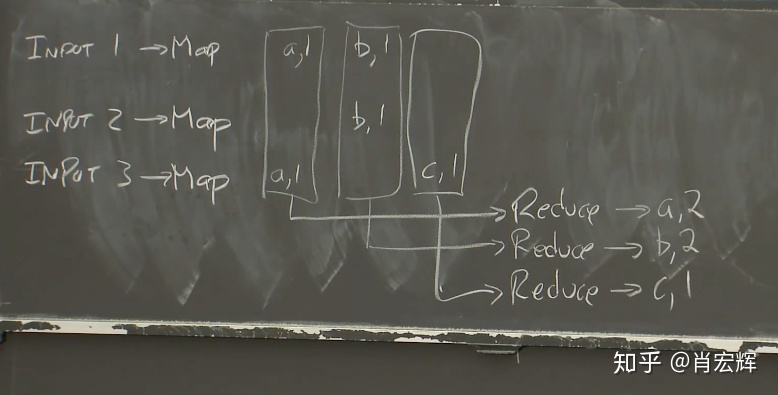 INPUT 1 → Map a,1 b,1
INPUT 2 → Map b,1
INPUT 3 → Map a,1 c,1
Reduce → a,2
Reduce → b,2
Reduce → c,1
知乎 @肖宏辉